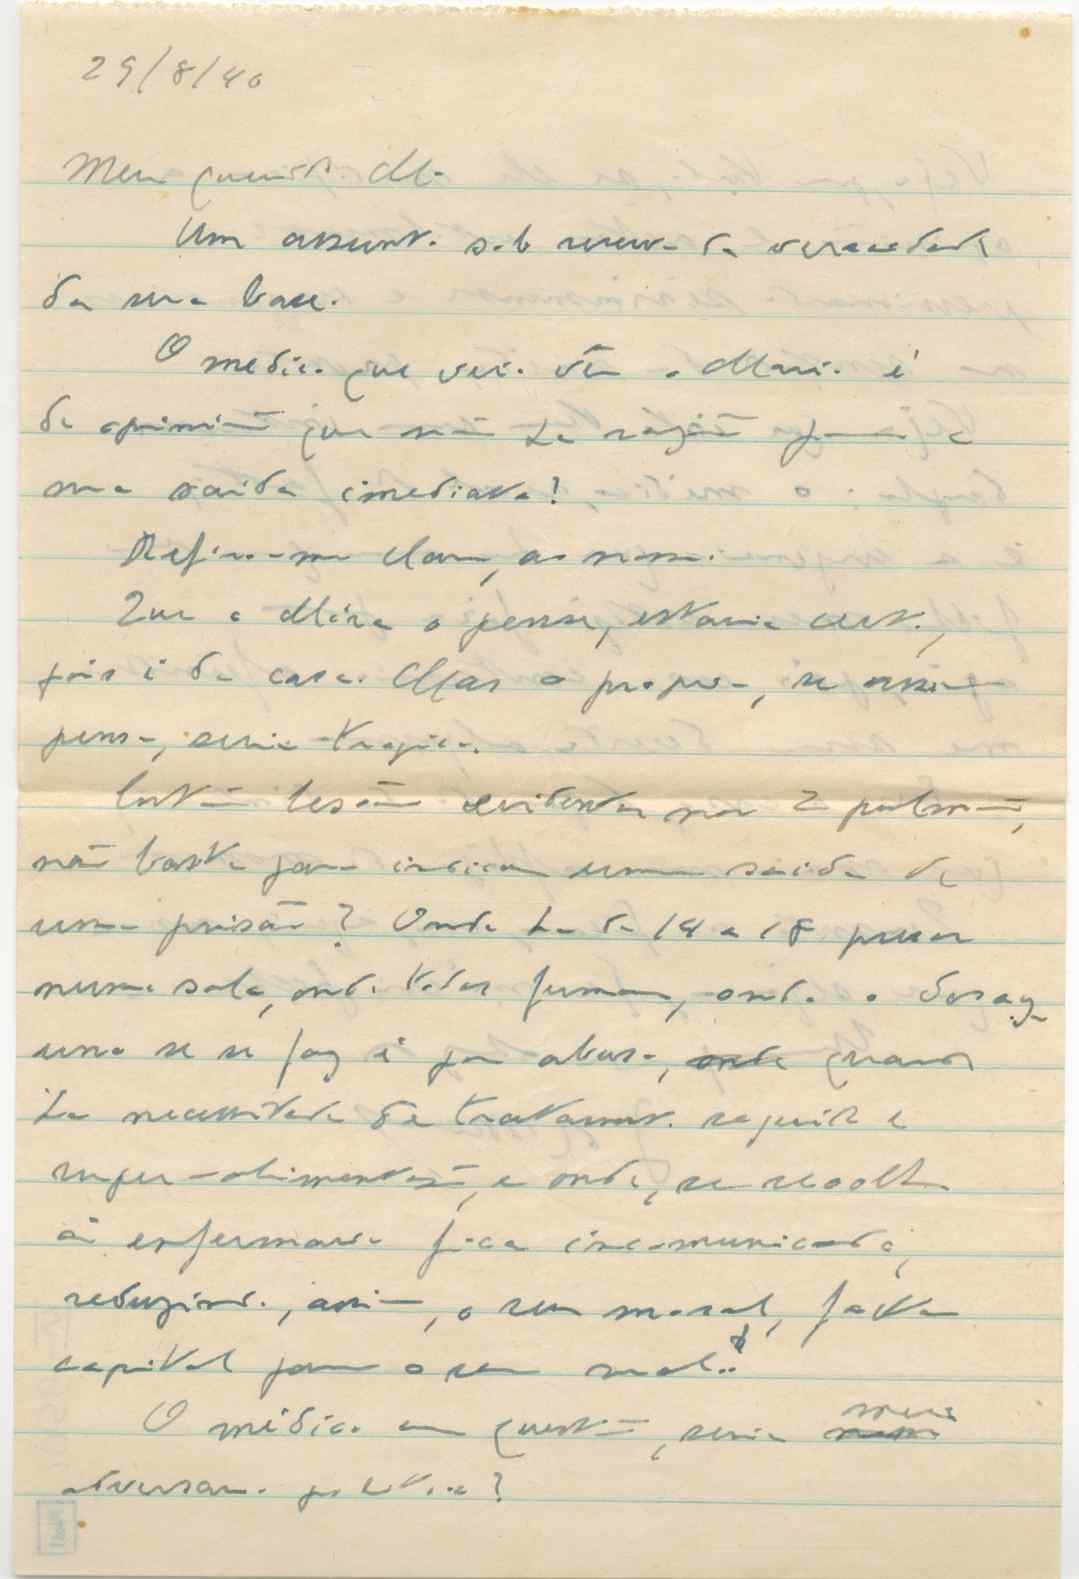 29/8/40
Meu querido M.
Um assunto sob reserva da veracidade
da sua base.
O medico que veio vêr o Mario é
de opinião que não ha razão para a
sua saida imediata?
Refiro-me claro, ao nosso.
Que a Mira o pense, estaria certo,
pois é da casa. Mas o proprio, se assim
pensa, seria tragico.
Então lesão evidente nos 2 pulmões,
não basta para indicar uma saida de
uma prisão? Onde ha de 14 a 18 presos
numa sala, onde todos fumam, onde o
uma se se faz é por abuso, onde quando
ha necessidade de tratamento rapido e
super-alimentação, e onde, se recolhe
á enfermaria fica incomunicado,
reduzindo, assim, o seu moral, factor
capital para o seu mal..
O médico em questão, seria meu
adversario politico?